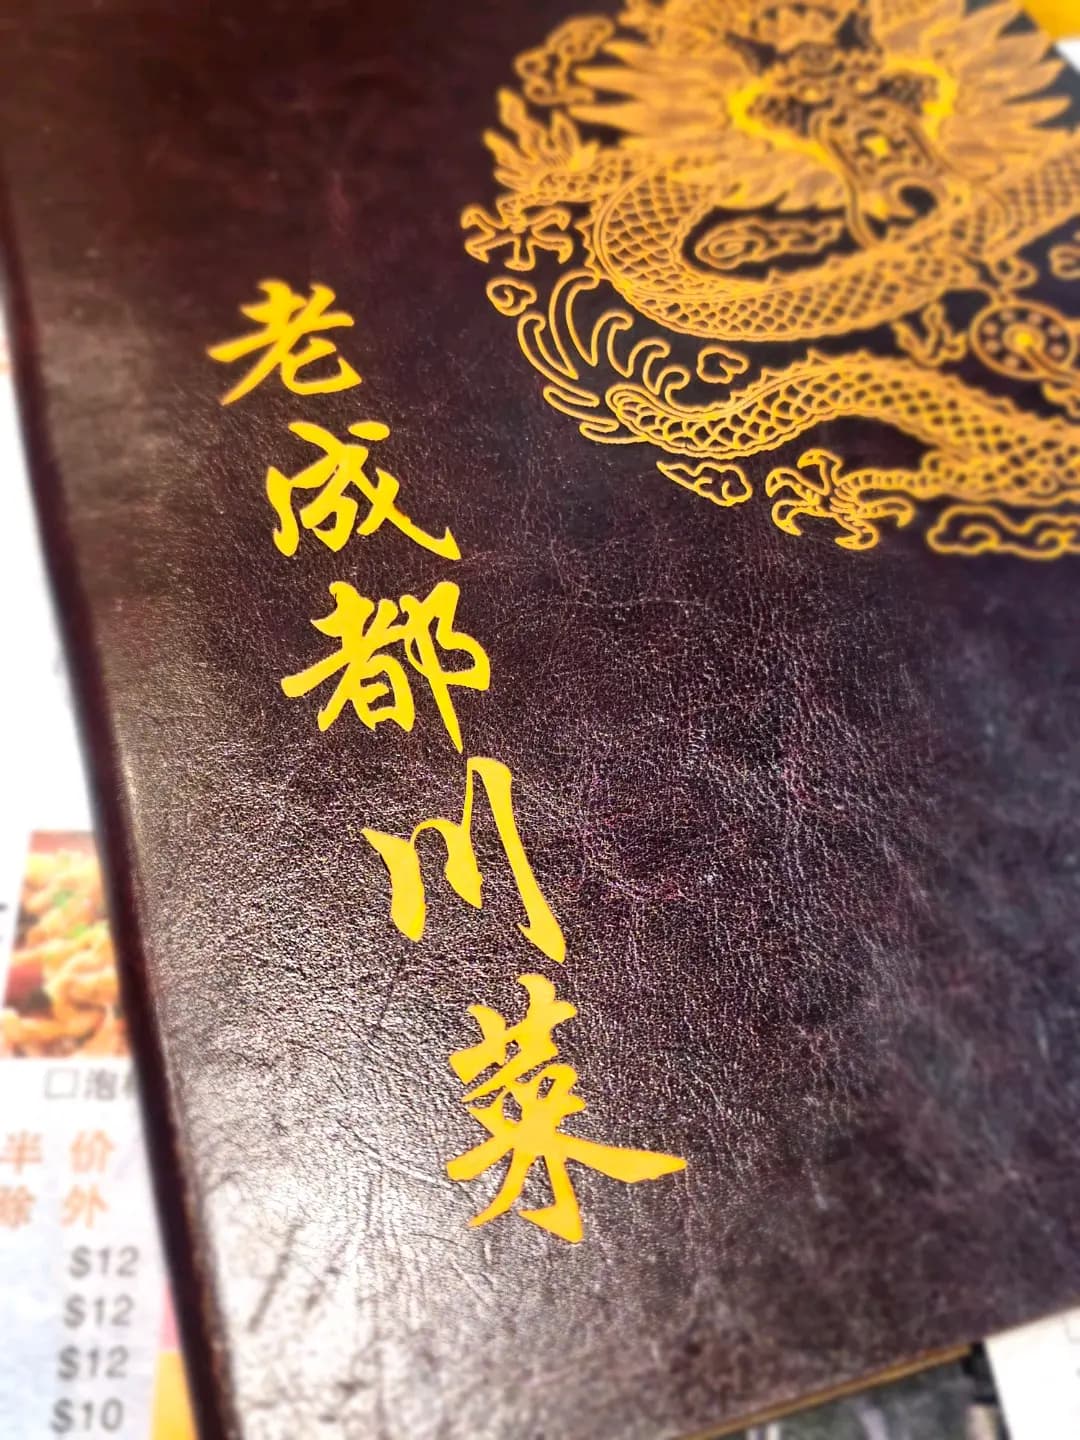 老成都川菜
泡
半价
除外
$12
$12
$12
$10